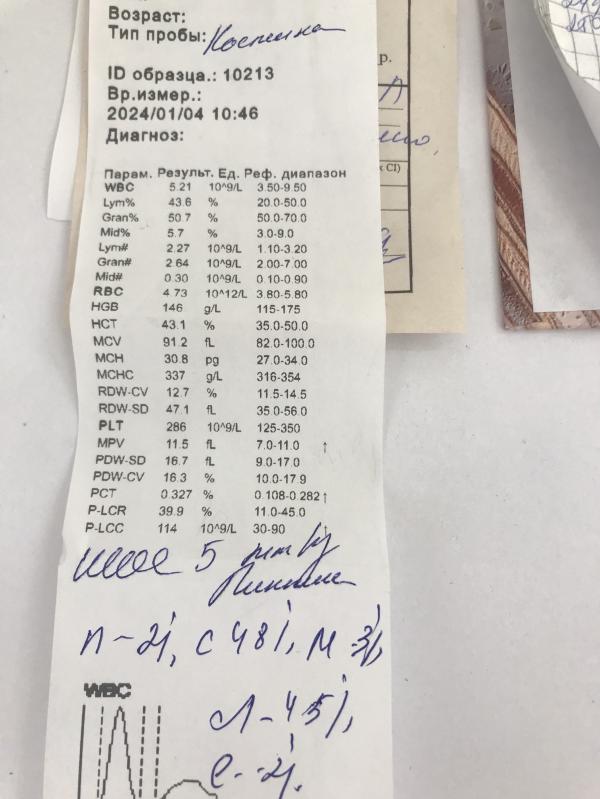 Возраст:
Тип пробы:
ID образца.: 10213
Вр.измер.:
2024/01/04 10:46
Диагноз:
Парам. Результ. Ед. Реф. диапазон
WBC 5.21 10^9/L 3.50-9.50
Lym% 43.6 % 20.0-50.0
Gran% 50.7 % 50.0-70.0
Mid% 5.7 % 3.0-9.0
Lym# 2.27 10^9/L 1.10-3.20
Gran# 2.64 10^9/L 2.00-7.00
Mid# 0.30 10^9/L 0.10-0.90
RBC 4.73 10^12/L 3.80-5.80
HGB 146 g/L 115-175
HCT 43.1 % 35.0-50.0
MCV 91.2 fL 82.0-100.0
MCH 30.8 pg 27.0-34.0
MCHC 337 g/L 316-354
RDW-CV 12.7 % 11.5-14.5
RDW-SD 47.1 fL 35.0-56.0
PLT 286 10^9/L 125-350
MPV 11.5 fL 7.0-11.0 ↑
PDW-SD 16.7 fL 9.0-17.0
PDW-CV 16.3 % 10.0-17.9
PCT 0.327 % 0.108-0.282 ↑
P-LCR 39.9 % 11.0-45.0
P-LCC 114 10^9/L 30-90 ↑
5
п-2%, с 48%, м-3%,
WBC
л-45%,
е-2%.